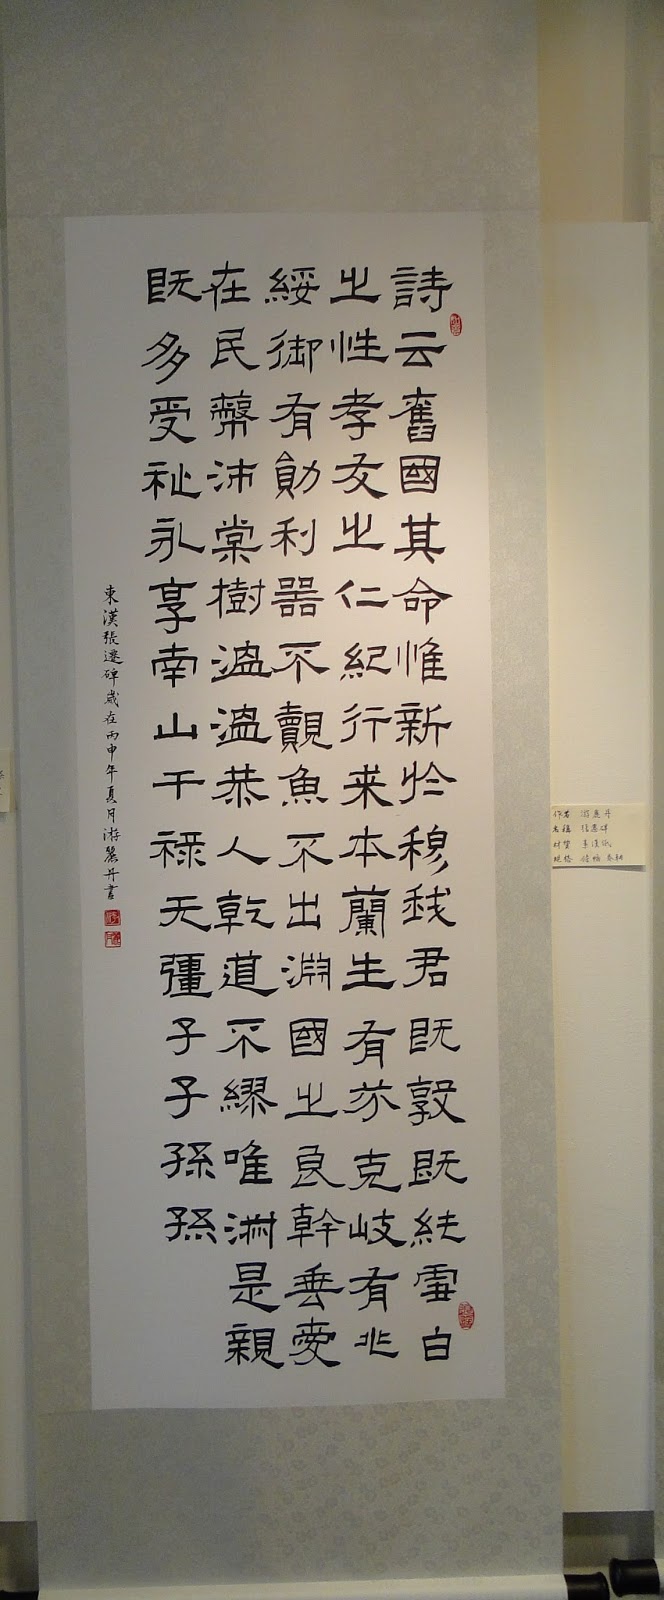 詩云舊國其命惟新於穆我君既敦既純雪白
之性孝友之仁紀行来本蘭生有芬克岐有兆
綏御有勛利器不覿魚不出淵國之良幹垂愛
在民蔽沛棠樹溫溫恭人乾道不繆唯淑是親
既多受祉永享南山干禄无疆子子孫孫
東漢張遷碑歲在丙申年夏月游麗丹書
作者 游麗丹
名稱 張遷碑
材質
規格